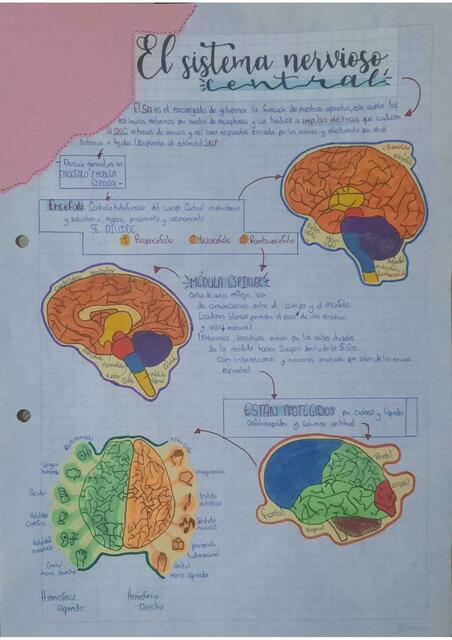 El sistema nervioso
central
El SN es el encargado de gobernar la función de nuestros aparatos, este capta los
estímulos externos por medio de receptores y los traduce a impulsos eléctricos que conducen
al SNC a través de nervios y así crear respuestas enviada por los nervios y efectuando por otros
sistemas o tejidos (respuesta al estímulo) SNP
División general en
ENCÉFALO Y MÉDULA
ESPINAL
Encéfalo: Controla toda función del cuerpo. Control involuntario
y voluntario, organo pensamiento y razonamiento
SE DIVIDE
1 Prosencéfalo 2 Mesencéfalo 3 Rombencéfalo
MÉDULA ESPINAL
Centro de actos reflejos. Vía
de comunicación entre el cuerpo y el encéfalo
(cordones blancos permiten el paso de vías sensitivas
y vías motoras)
(Neuronas sensitivas entran por las raíces dorsales
de la médula hacen sinapsis dentro de la S.Gris
Con interneuronas y neuronas motoras que salen de los nervios
espinales)
ESTÁN PROTEGIDOS por Cráneo y líquido
Cefalorraquídeo y columna vertebral
frontal
parietal
temporal
Razonamiento
Lenguaje
Escrito
Habilidad
Científica
Habilidad
numérica
Control
mano derecha
intuición
imaginación
Sentido
artístico
Sentido
musical
percepción
tridimensional
Control
mano izquierda
Hemisferio
Izquierdo
Hemisferio
Derecho